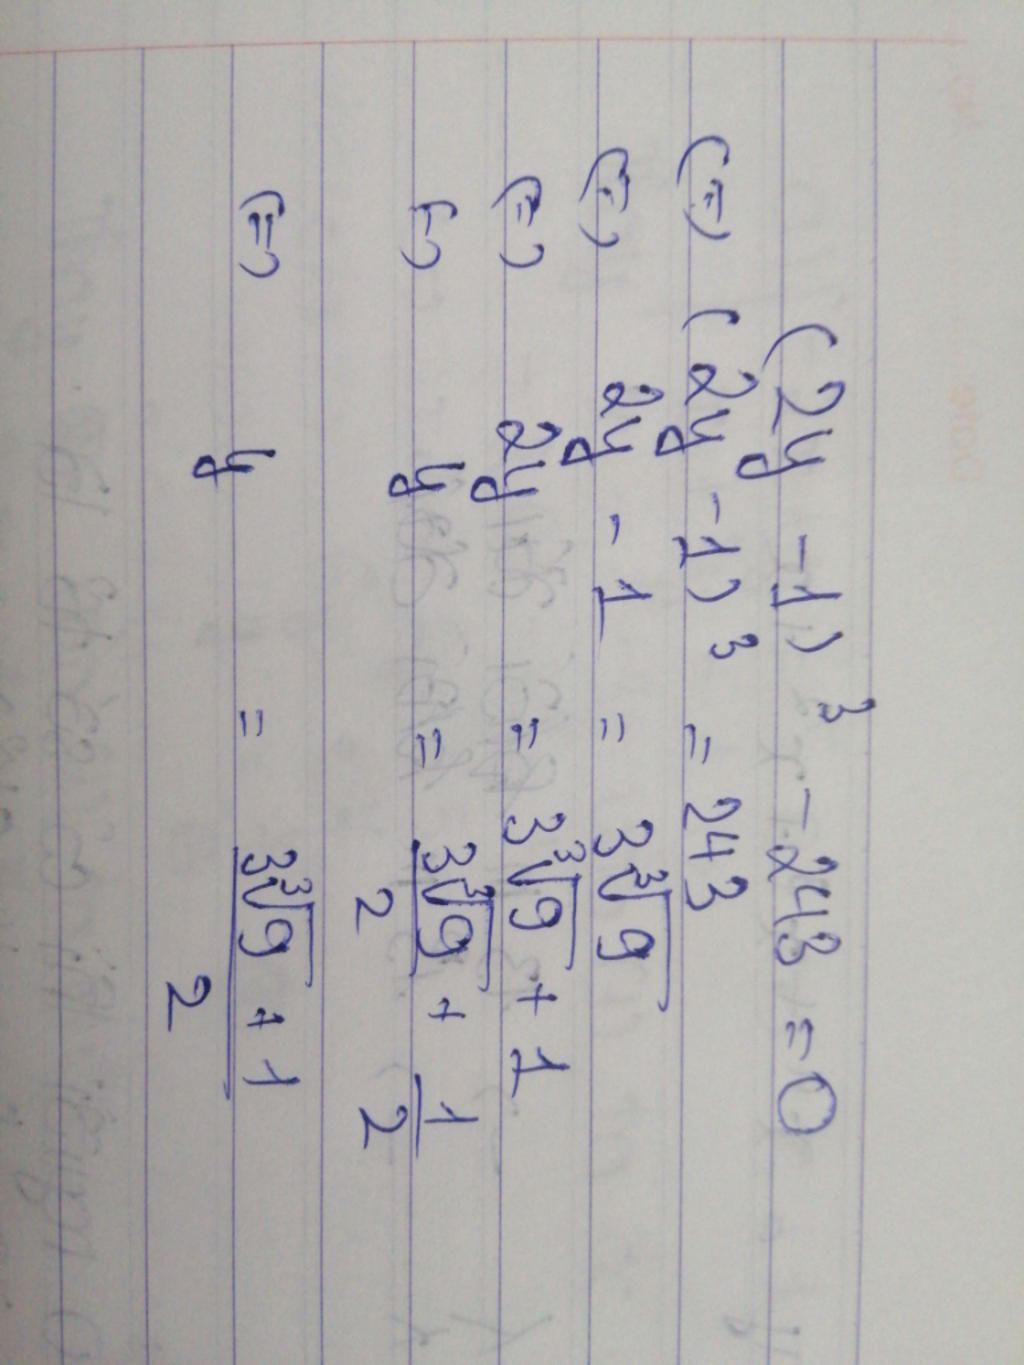 (2y - 1)³ - 243 = 0
(=) (2y - 1)³ = 243
(=) 2y - 1 = 3∛9
(=) 2y = 3∛9 + 1
(=) y = 3∛9/2 + 1/2
(=) y = (3∛9 + 1)/2